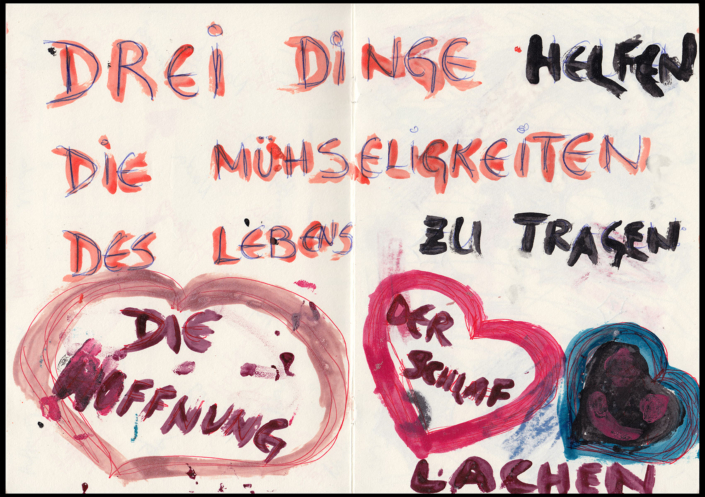 DREI DINGE HELFEN
DIE MÜHSELIGKEITEN
DES LEBENS ZU TRAGEN
DIE
HOFFNUNG
DER
SCHLAF
LACHEN